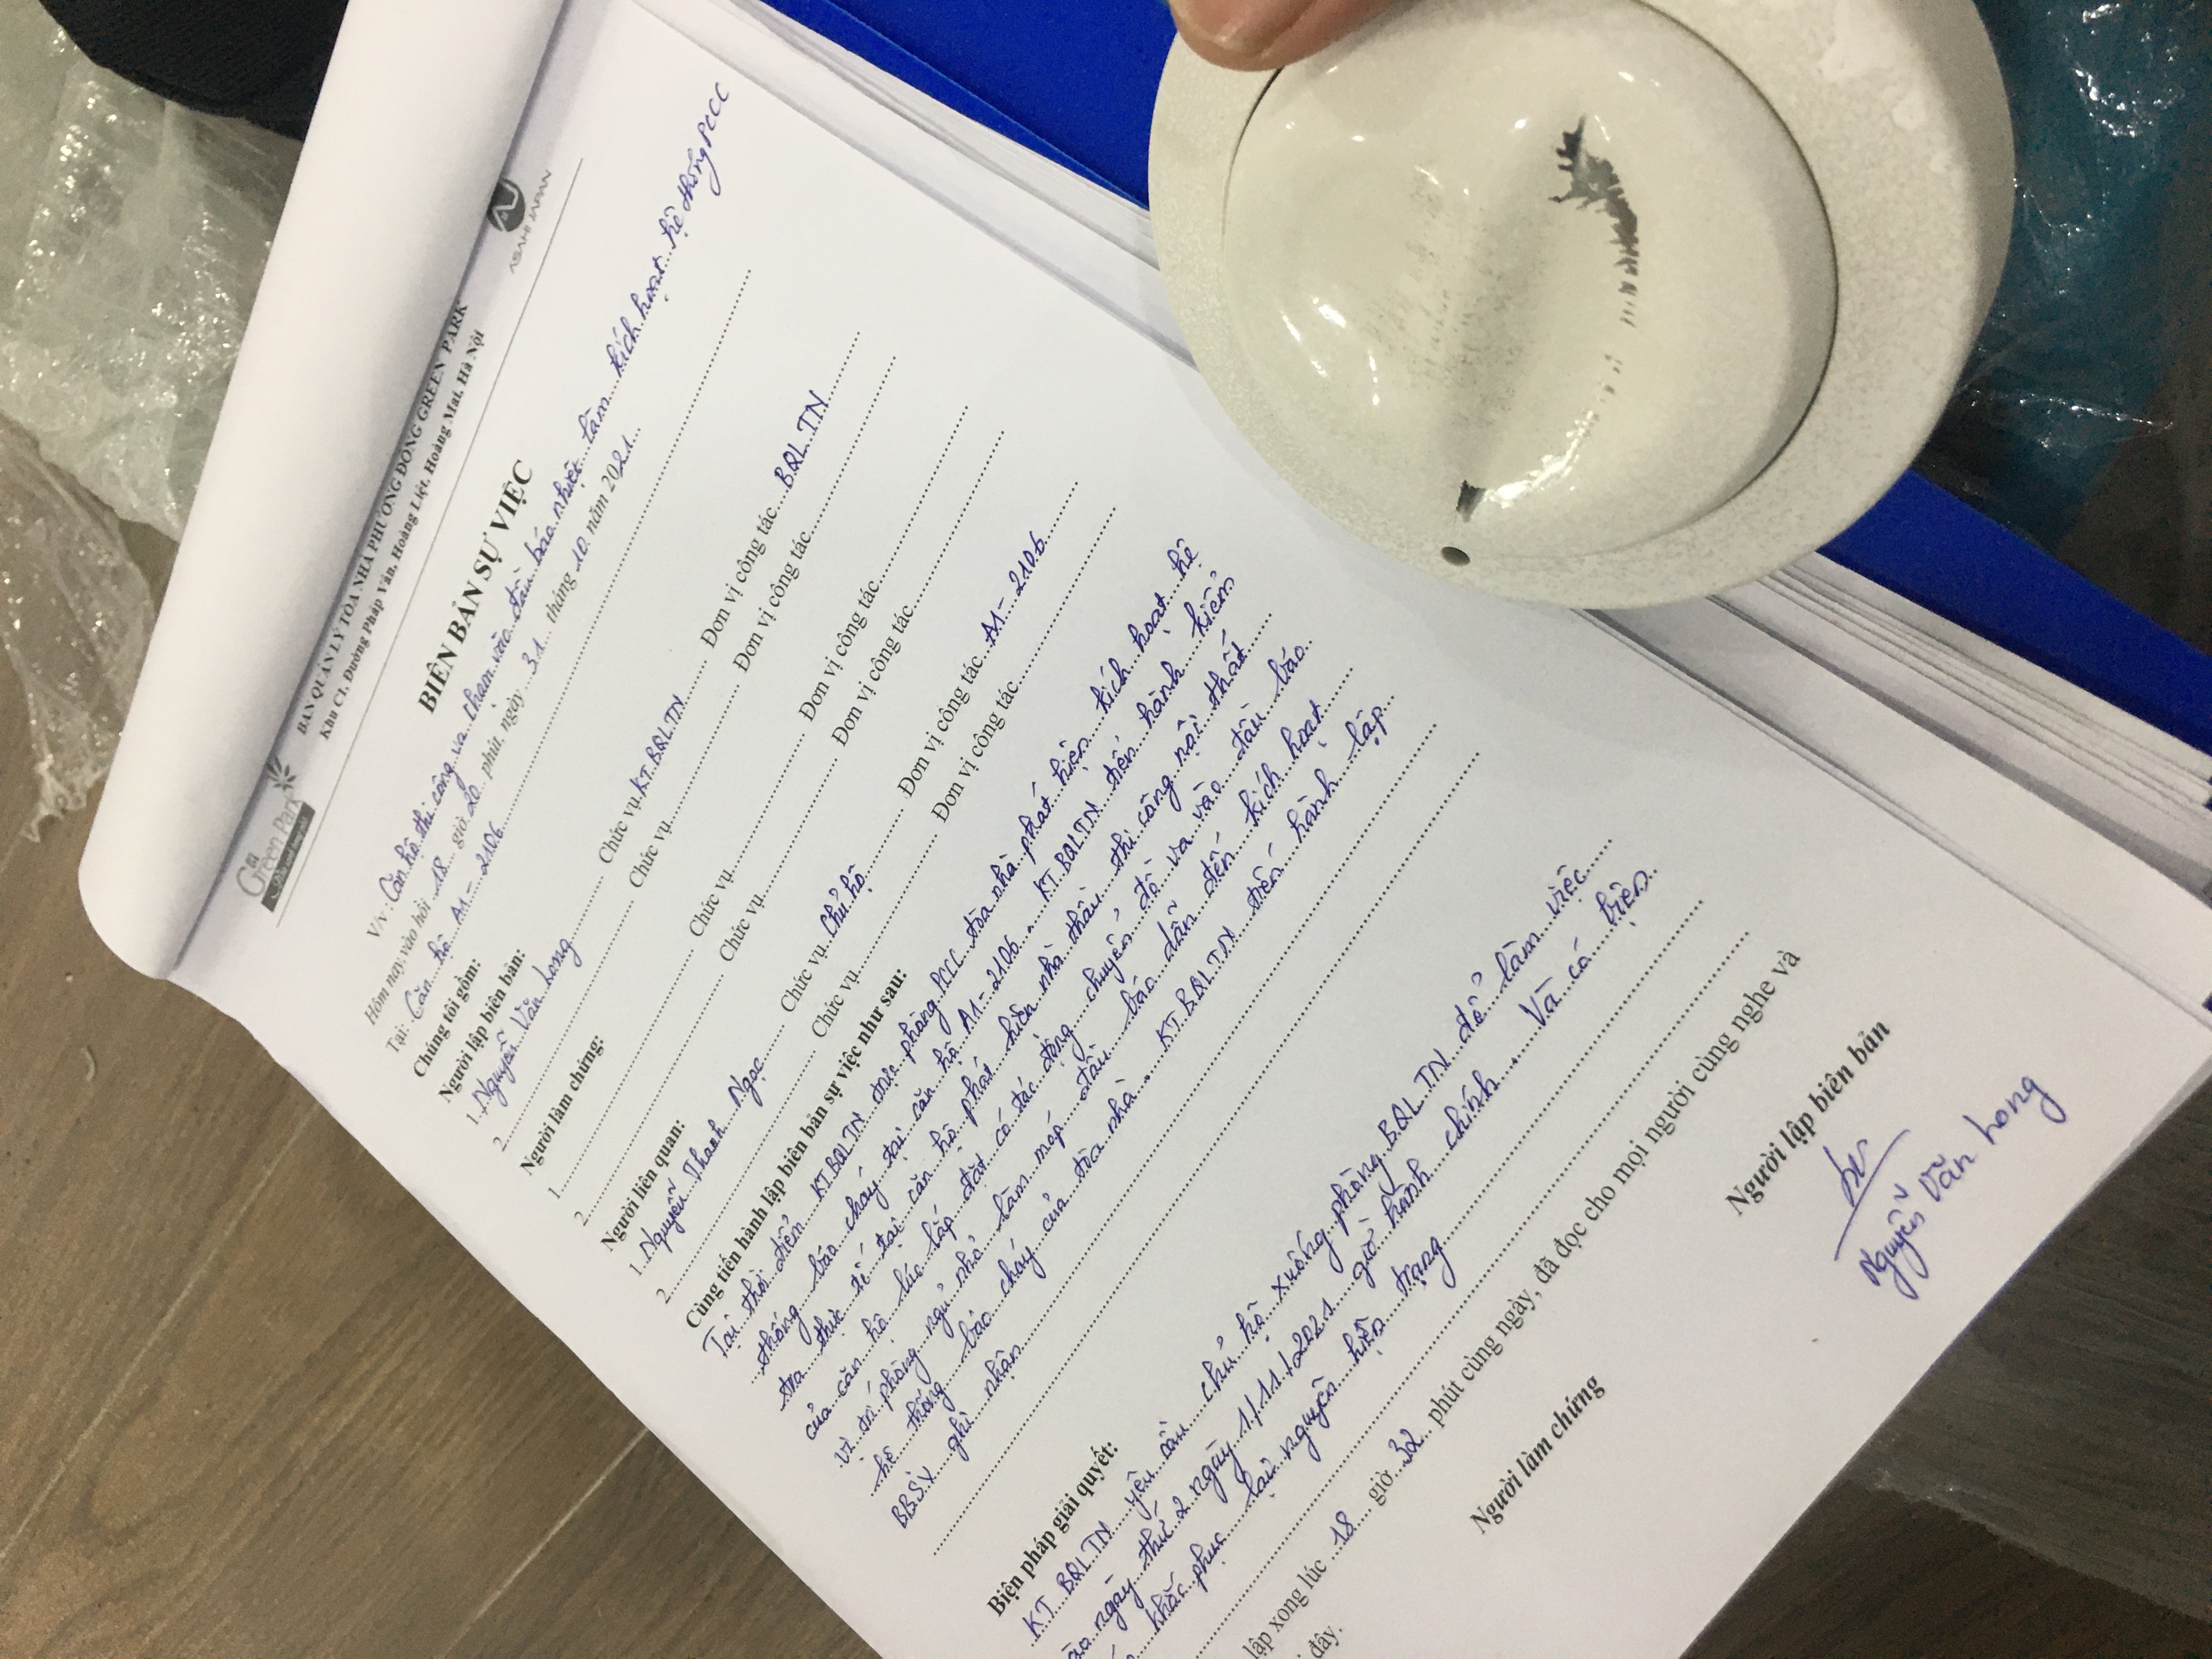 Green Park
BAN QUẢN LÝ TÒA NHÀ PHƯƠNG ĐÔNG GREEN PARK
Khu C1, Đường Pháp Vân, Hoàng Liệt, Hoàng Mai, Hà Nội
ASAHI JAPAN
BIÊN BẢN SỰ VIỆC
V/v : Căn hộ thi công va chạm vào đầu báo nhiệt làm kích hoạt hệ thống PCCC
Hôm nay, vào hồi 18 giờ 20 phút, ngày 31 tháng 10 năm 2021
Tại: Căn hộ A1-2106
Chúng tôi gồm:
Người lập biên bản:
1. Nguyễn Văn Long Chức vụ KT.BQLTN Đơn vị công tác BQLTN
2. Chức vụ Đơn vị công tác
Người làm chứng:
1. Chức vụ Đơn vị công tác
2. Chức vụ Đơn vị công tác
Người liên quan:
1. Nguyễn Thanh Ngọc Chức vụ Chủ hộ Đơn vị công tác A1-2106
2. Chức vụ Đơn vị công tác
Cùng tiến hành lập biên bản sự việc như sau:
Tại thời điểm KT.BQLTN trực phòng PCCC tòa nhà phát hiện kích hoạt hệ
thống báo cháy tại căn hộ A1-2106. KT.BQLTN tiến hành kiểm
tra thực tế tại căn hộ phát hiện nhà thầu thi công nội thất
của căn hộ lúc lắp đặt có tác động chuyển đồ va vào đầu báo
vị trí phòng ngủ nhỏ làm móp đầu báo dẫn đến kích hoạt
hệ thống báo cháy của tòa nhà. KT.BQLTN tiến hành lập
BBSV ghi nhận
Biện pháp giải quyết:
KT BQLTN yêu cầu chủ hộ xuống phòng BQLTN để làm việc
ngày thứ 2 ngày 1/11/2021 giờ hành chính. Và có biện
khắc phục lại nguyên hiện trạng
lập xong lúc 18 giờ 32 phút cùng ngày, đã đọc cho mọi người cùng nghe và
đây.
Người làm chứng
Người lập biên bản
Nguyễn Văn Long